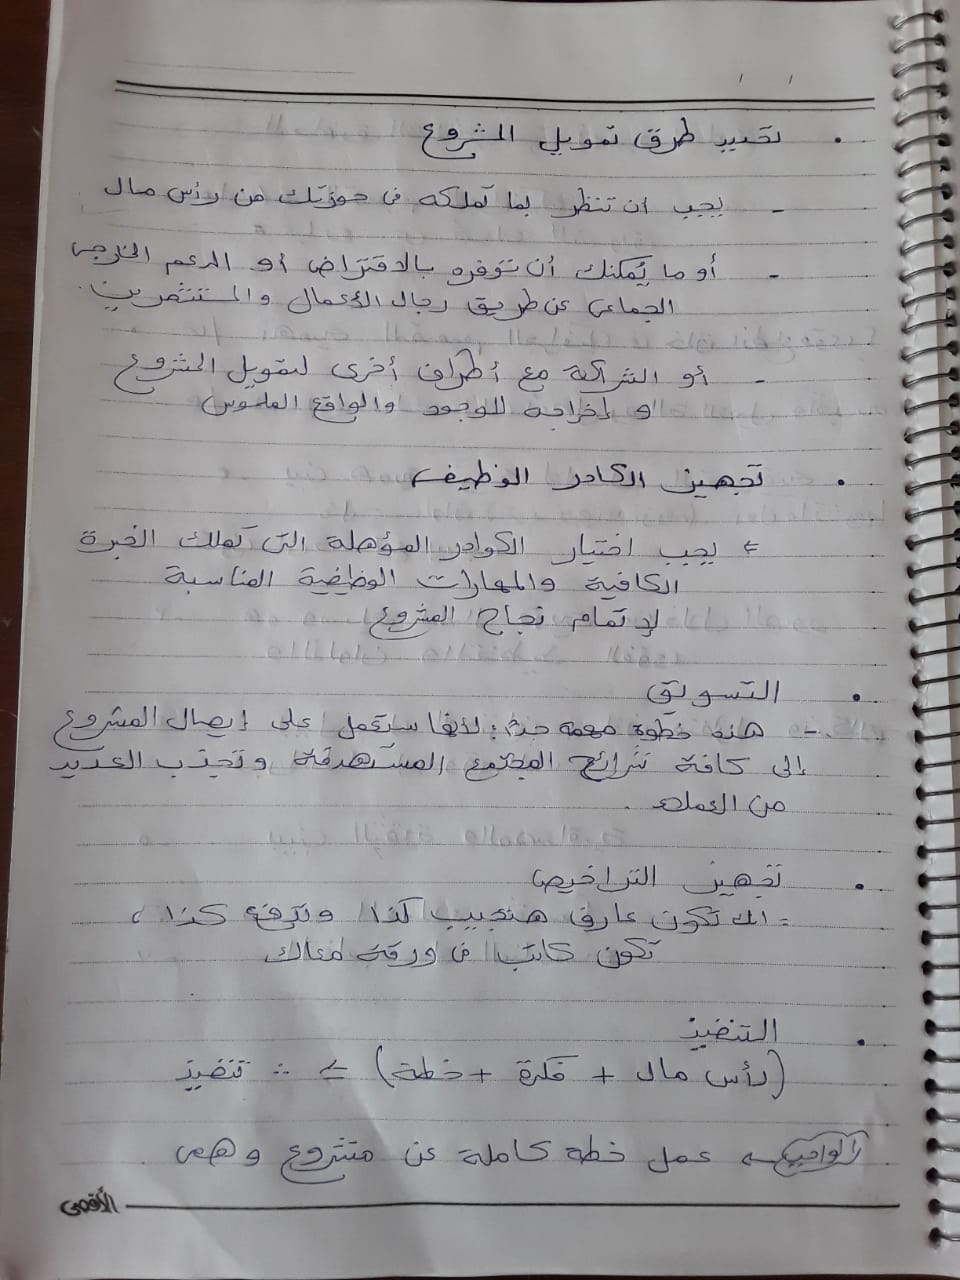 • تحديد طرق تمويل المشروع
- يجب ان تنظر بما تملكه فى حوزتك من رأس مال
- أو ما يُمكنك أن توفره بالاقتراض أو الدعم الخارجى
الجماعى عن طريق رجال الأعمال والمستثمرين.
- أو الشراكة مع أطراف أخرى لتمويل المشروع
و إخراجه للوجود والواقع الملموس
• تجهيز الكادر الوظيفى
⇐ يجب اختيار الكوادر المؤهلة التى تملك الخبرة
الكافية والمهارات الوظيفية المناسبة
لإتمام نجاح المشروع
• التسويق
- هذه خطوة مهمة جدًا، لأنها ستعمل على إيصال المشروع
إلى كافة شرائح المجتمع المستهدفة وتجذب العديد
من العملاء.
• تجهيز التراخيص
= انك تكون عارف هتجيب كذا وتدفع كذا،
تكون كاتب فى ورقة معاك
• التنفيذ
(رأس مال + فكرة + خطة) ⇐ ∴ تنفيذ
الواجب ← عمل خطة كاملة عن مشروع وهمى
الأقصى